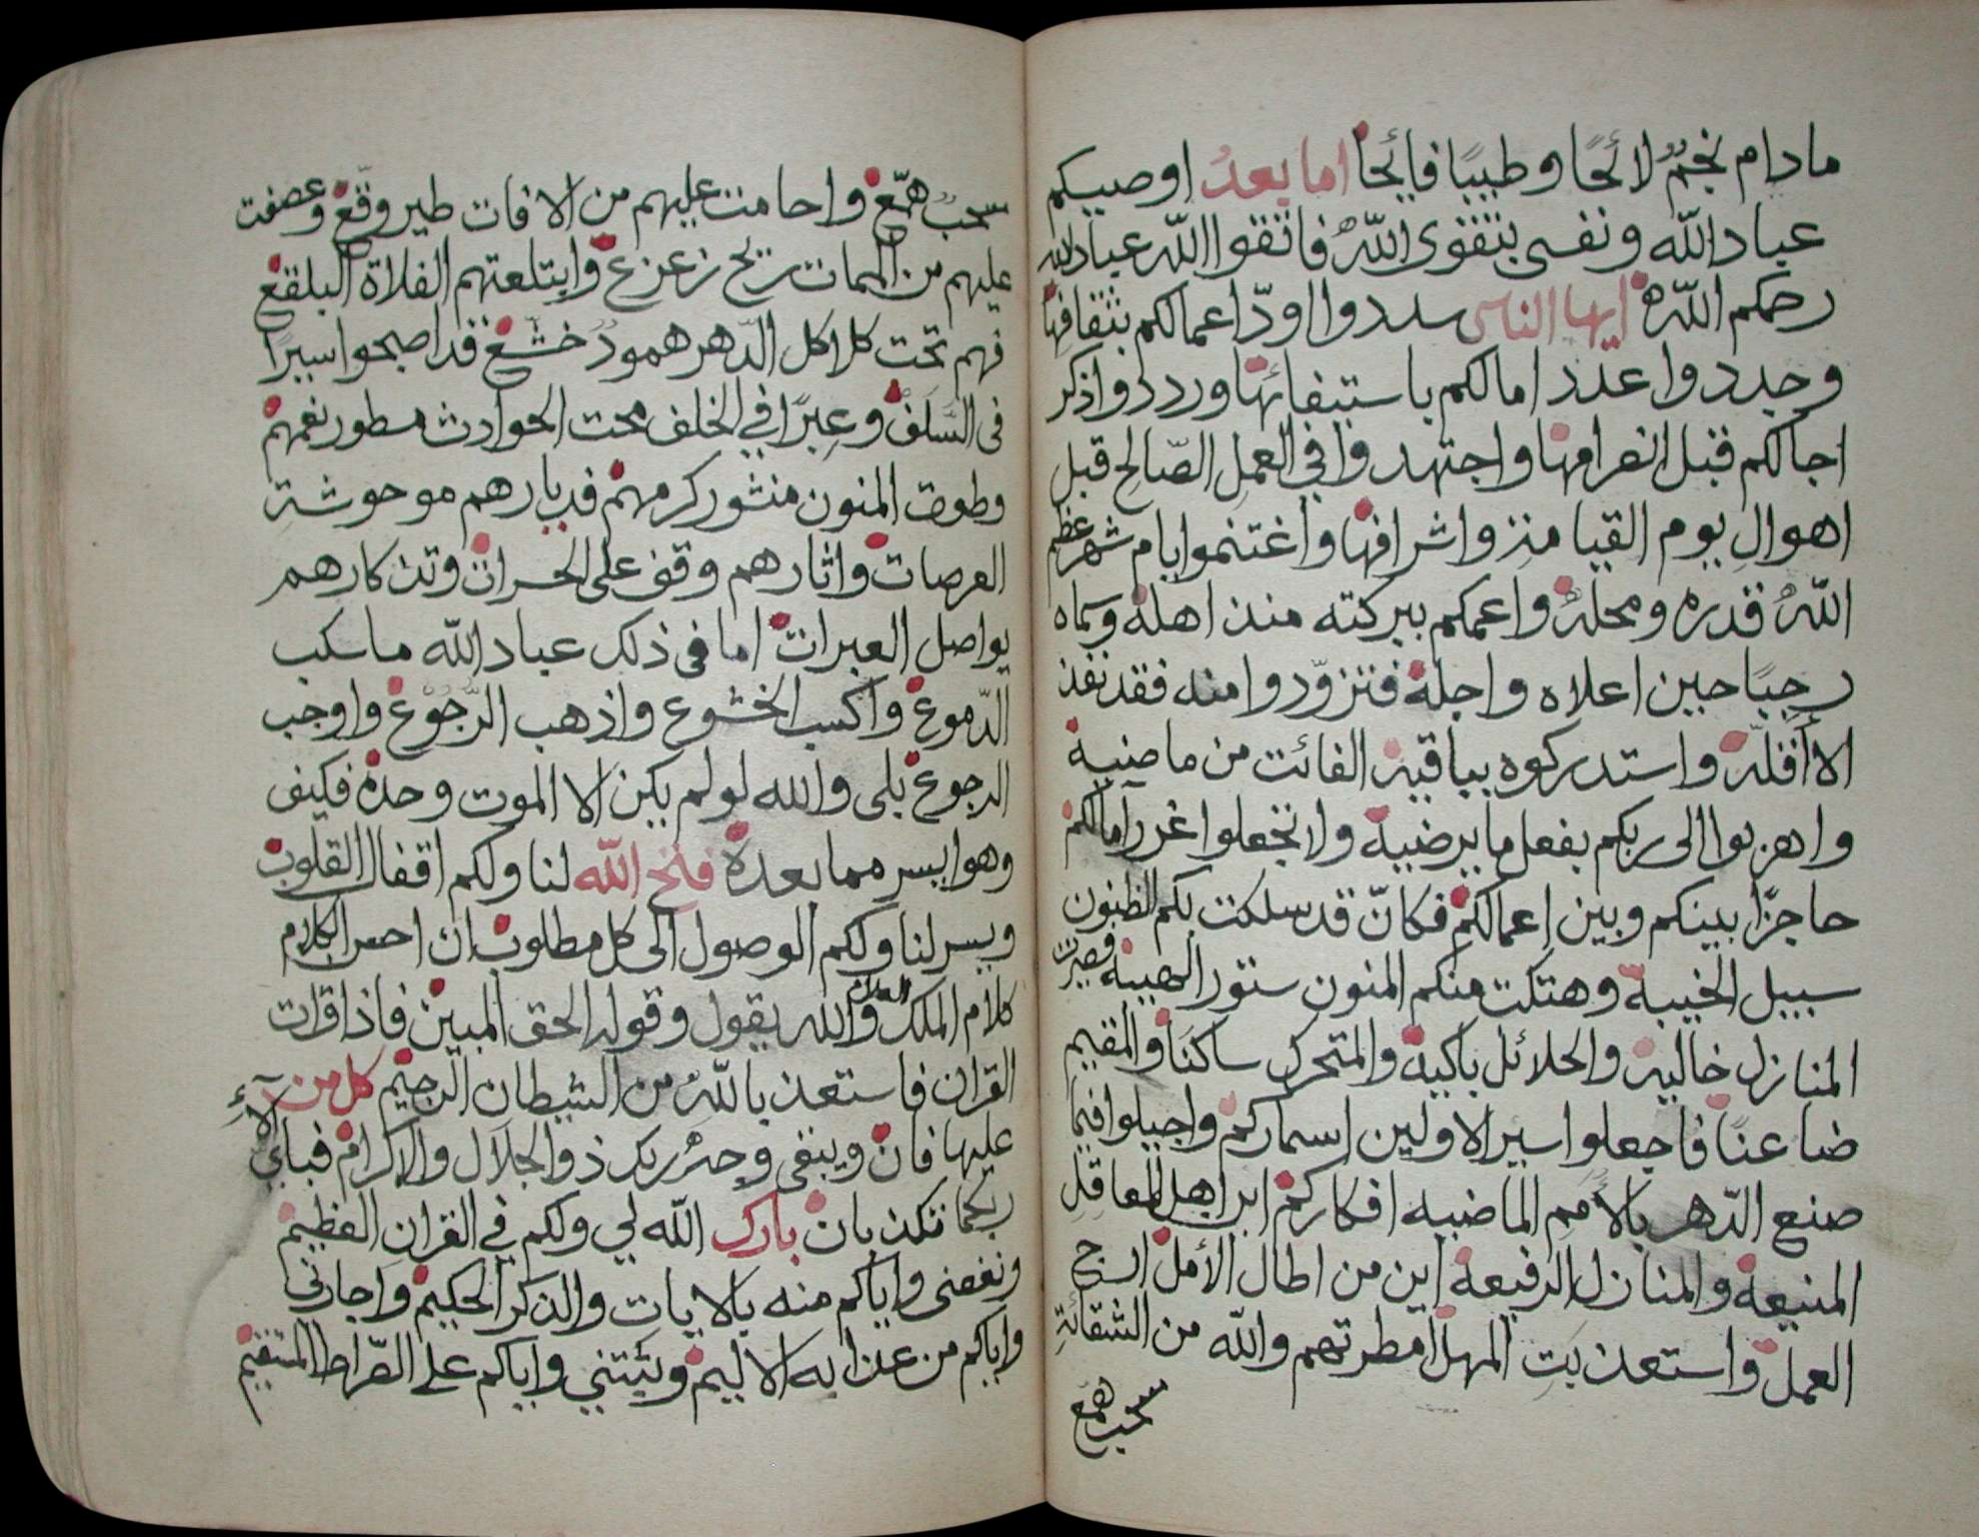 مادام نجمٌ لائحًا وطيبًا فايحًا اما بعدُ اوصيكم
عباد الله ونفسى بتقوى الله فاتقوا الله عباد الله
رحمكم الله ايها الناس سددوا اودّ اعمالكم بثقافها
وجددوا عدد امالكم باستيفائها ورددوا ذكر
اجالكم قبل انصرامها واجتهدوا في العمل الصّالح قبل
اهوال يوم القيامة واشرافها واغتنموا ايام شهر عظم
الله قدره ومحله واعمكم ببركته منذ اهله وسماه
رجبًا حين اعلاه واجله فتزوّدوا منه فقد نفذ
الا أقله واستدركوه بباقيه الفائت من ماضيه
واهربوا الى ربكم بفعل ما يرضيه ولا تجعلوا غرر آمالكم
حاجزًا بينكم وبين اعمالكم فكانّ قد سلكت بكم الظنون
سبيل الخيبة وهتكت منكم المنون ستور الهيبة فصيرت
المنازل خالية والحلائل باكية والمتحرك ساكنًا والمقيم
ضاعنًا فاجعلوا سير الاولين اسماركم واجيلوا فيما
صنع الدّهر بالأمم الماضيه افكاركم اين اهل المعاقل
المنيعة والمنازل الرفيعة اين من اطال الأمل
العمل واستعذبت المهل امطرتهم والله من الشقائة
سحب همع
سحبٌ همّع واحامت عليهم من الافات طير وقّع وعصفت
عليهم من الممات ريح زعزع وابتلعتهم الفلاة البلقع
فهم تحت كلاكل الدّهر همودٌ خشّع قد اصبحوا سيرًا
فى السَلَف وعِبرًا في الخلف محت الحوادث مسطور نعمهم
وطوت المنون منثور كرمهم فديارهم موحوشة
العرصات واثارهم وقف على الحسرات وتذكارهم
يواصل العبرات اما فى ذلك عباد الله ما سكب
الدّموع واكسب الخشوع واذهب الرُّجُوْع واوجب
الرجوع بلى والله لو لم يكن الا الموت وحده فكيف
وهو ايسر مما بعده فتح الله لنا ولكم اقفال القلوب
ويسر لنا ولكم الوصول الى كل مطلوب ان احسن الكلام
كلام الملك العلام والله يقول وقوله الحق المبين فاذا قرات
القران فاستعذ بالله من الشيطان الرجيم كل من
عليها فان ويبقى وجه ربك ذو الجلال والاكرام فباي آلاءِ
ربكما تكذبان بارك الله لي ولكم في القران العظيم
ونفعنى واياكم منه بالايات والذكر الحكيم واجارني
واياكم من عذابه الاليم ويثبتني واياكم على الصّراط المستقيم